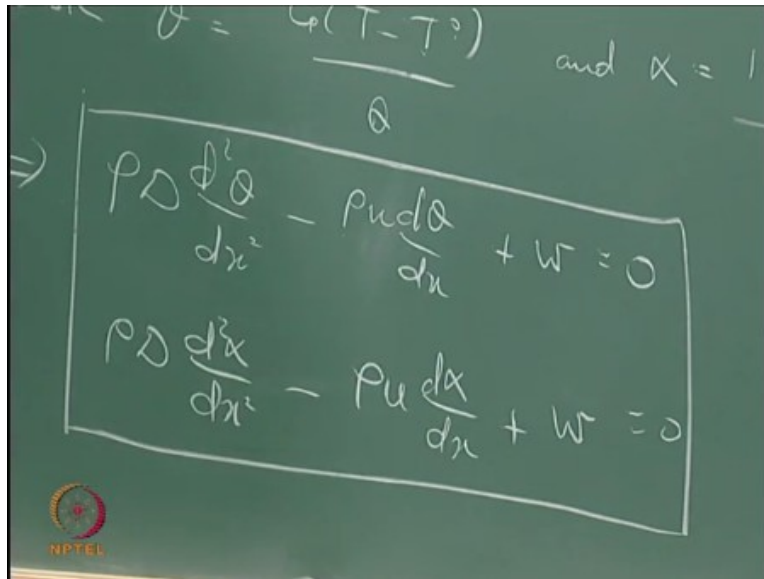 θ = Cp(T - T°) / Q and α = 1
⇒ ρD d²θ/dx² - ρu dθ/dx + w = 0
ρD d²α/dx² - ρu dα/dx + w = 0
NPTEL